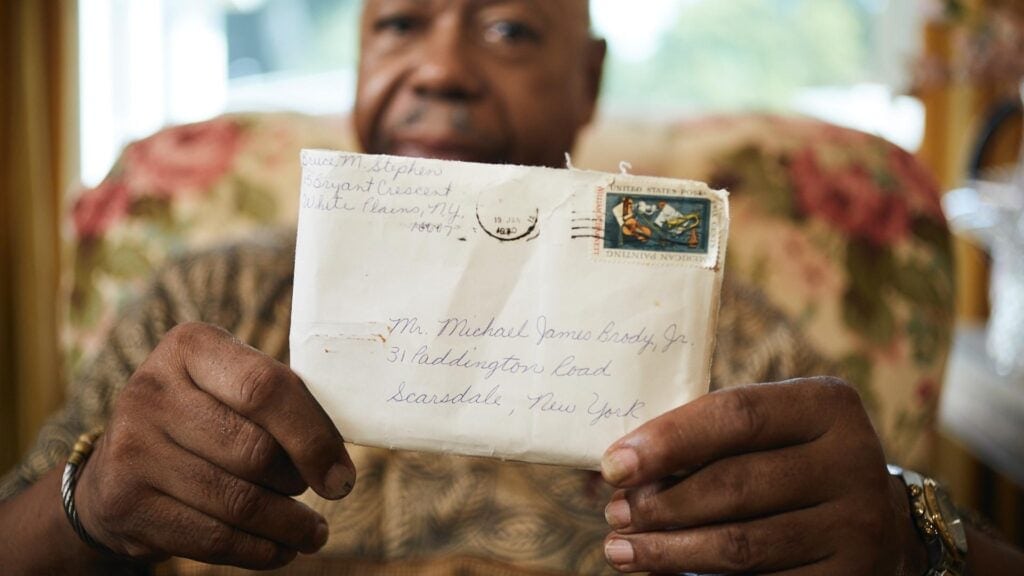 Bruce M. Stephen
Bryant Crescent
White Plains, N.Y.
UNITED STATES POS
AMERICAN PAINTING
Mr. Michael James Brody, Jr.
31 Paddington Road
Scarsdale, New York